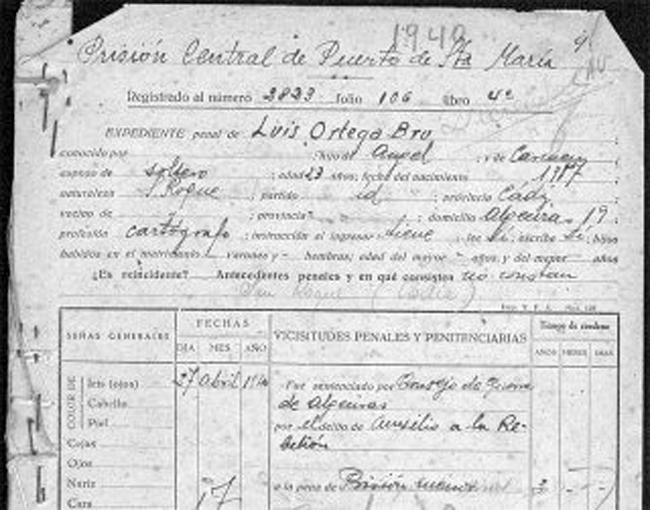 1940
Prisión Central de Puerto de Sta María
Registrado al número 2823 folio 106 libro 4º
EXPEDIENTE penal de Luis Ortega Bru
conocido por ; hijo de Angel y de Carmen
esposo de soltero ; edad 23 años; fecha del nacimiento 1917
naturaleza S Roque ; partido id ; provincia Cádiz
vecino de ; provincia ; domicilio Algeciras 19 ;
profesión cartógrafo ; instrucción al ingresar tiene ; lee Sí; escribe Sí; hijos
habidos en el matrimonio varones y - hembras; edad del mayor - años, y del menor años
¿Es reincidente? Antecedentes penales y en qué consisten no constan
San Roque (Cádiz)
SEÑAS GENERALES
FECHAS
DIA MES AÑO
VICISITUDES PENALES Y PENITENCIARIAS
Tiempo de condena
AÑOS MESES DIAS
COLOR DE
Iris (ojos)
Cabello
Piel
Cejas
Ojos
Nariz
Cara
27 Abril 1940
Fue sentenciado por Consejo de Guerra
de Algeciras
por el delito de Auxilio a la Re-
belión
a la pena de Prisión menor
17